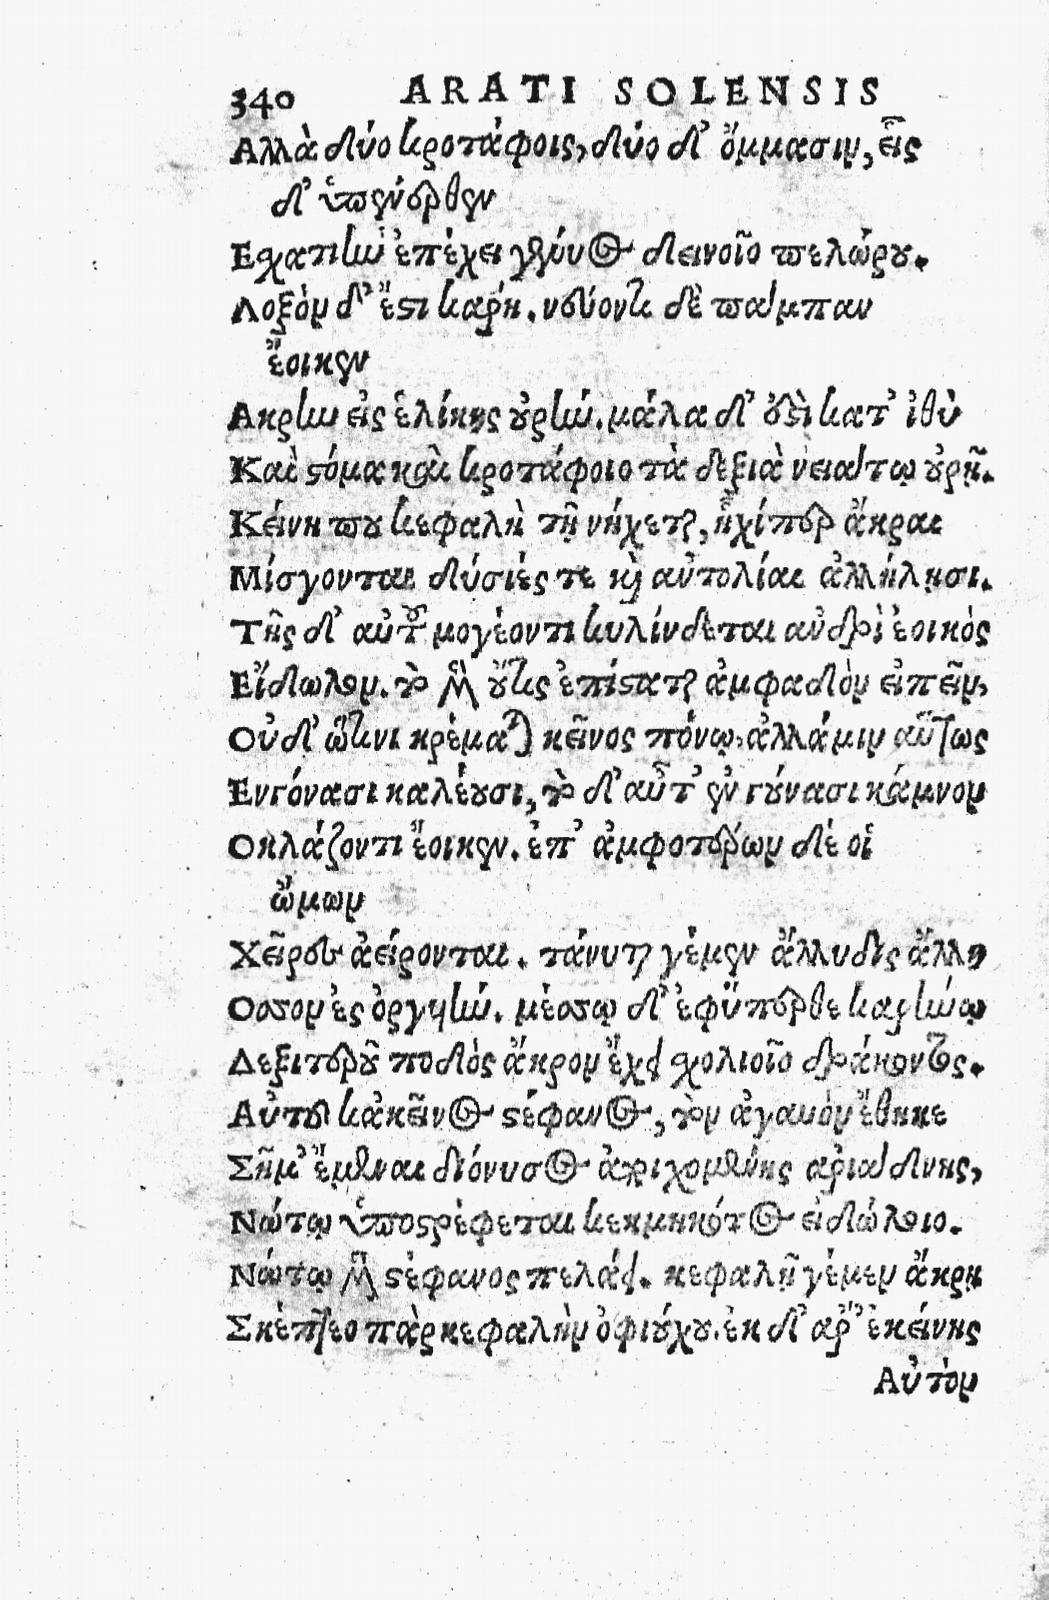 340 ARATI SOLENSIS
Αλλὰ δύο κροτάφοις, δύο δ' ὄμμασιν, εἷς
δ' ὑπένερθεν
Εσχατιὴν ἐπέχει γένυος δεινοῖο πελώρου.
Λοξὸν δ' ἔστι κάρη. νεύοντι δὲ πάμπαν
ἔοικεν
Ακρην εἰς ἑλίκης οὐρήν. μάλα δ' ὅστι κατ' ἰθὺ
Καὶ στόμα καὶ κροτάφοιο τὰ δεξιὰ νειάτῳ οὐρῇ.
Κείνη που κεφαλὴ τῇ νήχεται, ἧχίπερ ἄκραι
Μίσγονται δύσιές τε καὶ αὐτολίαι ἀλλήλῃσι.
Τῆς δ' αὐτοῦ μογέοντι κυλίνδεται ἀνδρὶ ἐοικὸς
Εἴδωλον. τὸ μὲν οὔτις ἐπίσταται ἀμφαδὸν εἰπεῖν,
Οὐδ' ὥτινι κρέμαται κεῖνος πόνῳ, ἀλλάμιν αὕτως
Ενγόνασι καλέουσι, τὸ δ' αὖτ' ἐν γούνασι κάμνον
Οκλάζοντι ἔοικεν. ἐπ' ἀμφοτέρων δέ οἱ
ὤμων
Χεῖρες ἀείρονται. τάνυται γέμεν ἄλλυδις ἄλλη
Οσσον ἐς ὀργυιήν. μέσσῳ δ' ἐφύπερθε καρήνῳ
Δεξιτεροῦ ποδὸς ἄκρον ἔχει σχολιοῖο δράκοντος.
Αὐτοῦ κἀκεῖνος στέφανος, τὸν ἀγαυὸν ἔθηκε
Σῆμ' ἔμεναι διόνυσος ἀποιχομένης ἀριάδνης,
Νώτῳ ὑποστρέφεται κεκμηκότος εἰδώλοιο.
Νώτῳ μὲν στέφανος πελάει. κεφαλῇ γέμεν ἄκρη
Σκέπτεο πὰρ κεφαλὴν ὀφιούχου. ἐκ δ' ἄρ' ἐκείνης
Αὐτὸν